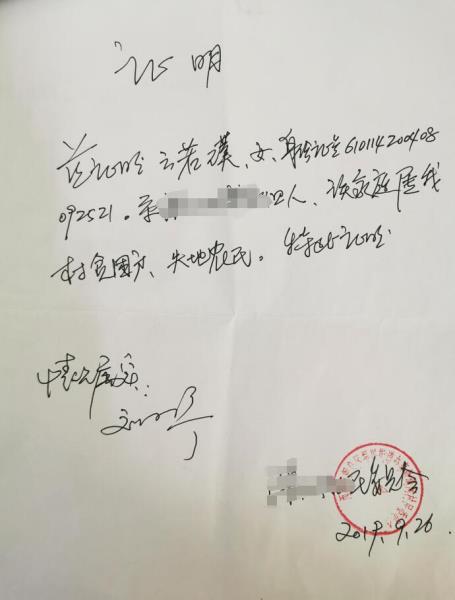 证明
兹证明云若漢、女、身份证号610114200408
092521。系 人、该家庭属我
村贫困户、失地农民。特此证明
情况属实:
委员会
2019.9.26